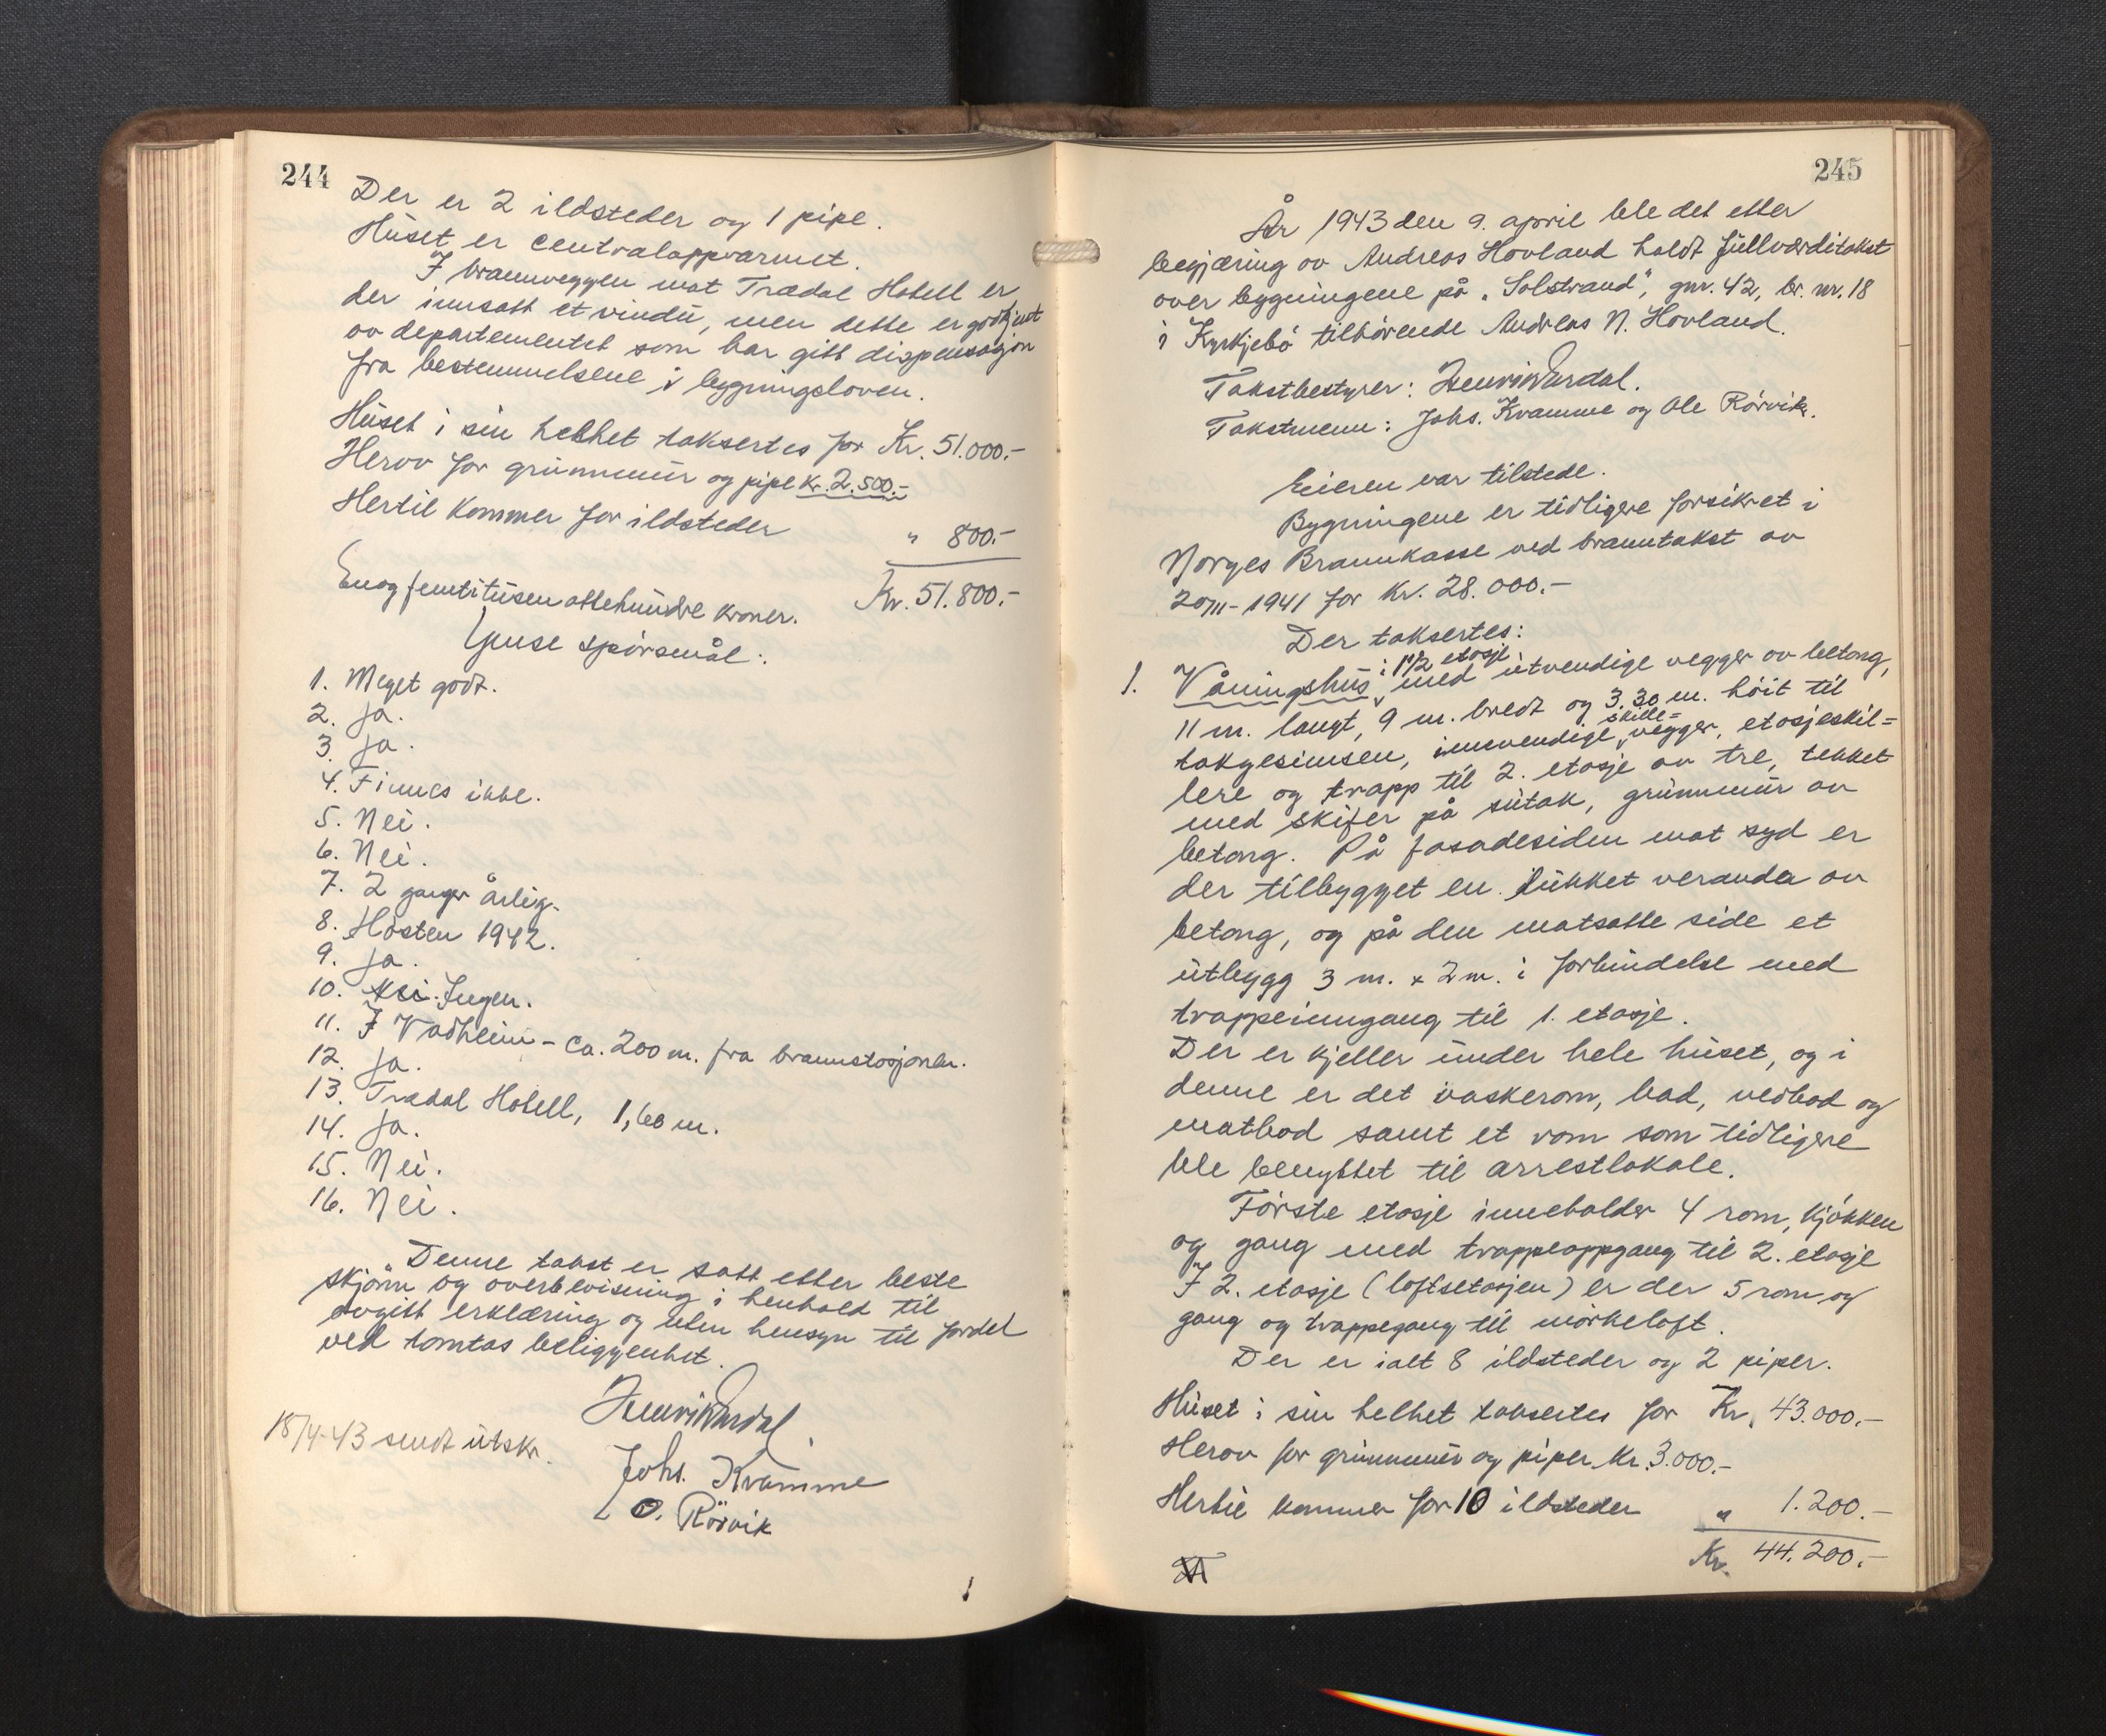 244
Der er 2 ildsteder og 1 pipe.
Huset er centraloppvarmet.
I brannveggen mot Trædal Hotell er
der innsatt et vindu, men dette er godkjent
av departementet som har gitt dispensasjon
fra bestemmelsene i bygningsloven.
Huset i sin helhet taksertes for Kr. 51.000.-
Herav for grunnmur og pipe Kr. 2.500.-
Hertil kommer for ildsteder " 800.-
Kr. 51.800.-
Enogfemtitusenottehundre kroner.
Ymse spørsmål:
1. Meget godt.
2. Ja.
3. Ja.
4. Finnes ikke.
5. Nei.
6. Nei.
7. 2 ganger årlig.
8. Høsten 1942.
9. Ja.
10. Nei. Ingen.
11. I Vadheim - ca. 200 m. fra brannstasjonen.
12. Ja.
13. Trædal Hotell, 1,60 m.
14. Ja.
15. Nei.
16. Nei.
Denne takst er satt etter beste
skjønn og overbevisning i henhold til
avgitt erklæring og uten hensyn til fordel
ved tomtas beliggenhet.
Johs. Kvamme
O. Rörvik
18/4-43 sendt utskr.
245
År 1943 den 9. april ble det etter
begjæring av Andreas Hovland holdt fullverditakst
over bygningene på "Solstrand", gnr. 42, br. nr. 18
i Kyrkjebø tilhørende Andreas N. Hovland.
Takstbestyrer:
Takstmenn: Johs. Kvamme og Ole Rørvik.
Eieren var tilstede.
Bygningene er tidligere forsikret i
Norges Brannkasse ved branntakst av
20/11-1941 for Kr. 28.000.-
Der taksertes:
1. Våningshus i 1 1/2 etasje med utvendige vegger av betong,
11 m. langt, 9 m. bredt og 3.30 m. høit til
takgesimsen, innvendige skille=vegger, etasjeskil=
lere og trapp til 2. etasje av tre, tekket
med skifer på sutak, grunnmur av
betong. På fasadesiden mot syd er
der tilbygget en lukket veranda av
betong, og på den motsatte side et
utbygg 3 m. x 2 m. i forbindelse med
trappeinngang til 1. etasje.
Der er kjeller under hele huset, og i
denne er det vaskerom, bad, vedbod og
matbod samt et rom som tidligere
ble benyttet til arrestlokale.
Første etasje inneholder 4 rom, kjøkken
og gang med trappeoppgang til 2. etasje
I 2. etasje (loftsetasjen) er der 5 rom og
gang og trappegang til mørkeloft.
Der er ialt 8 ildsteder og 2 piper.
Huset i sin helhet taksertes for Kr. 43.000.-
Herav for grunnmur og piper Kr. 3.000.-
Hertil kommer for 10 ildsteder " 1.200.-
Kr. 44.200.-